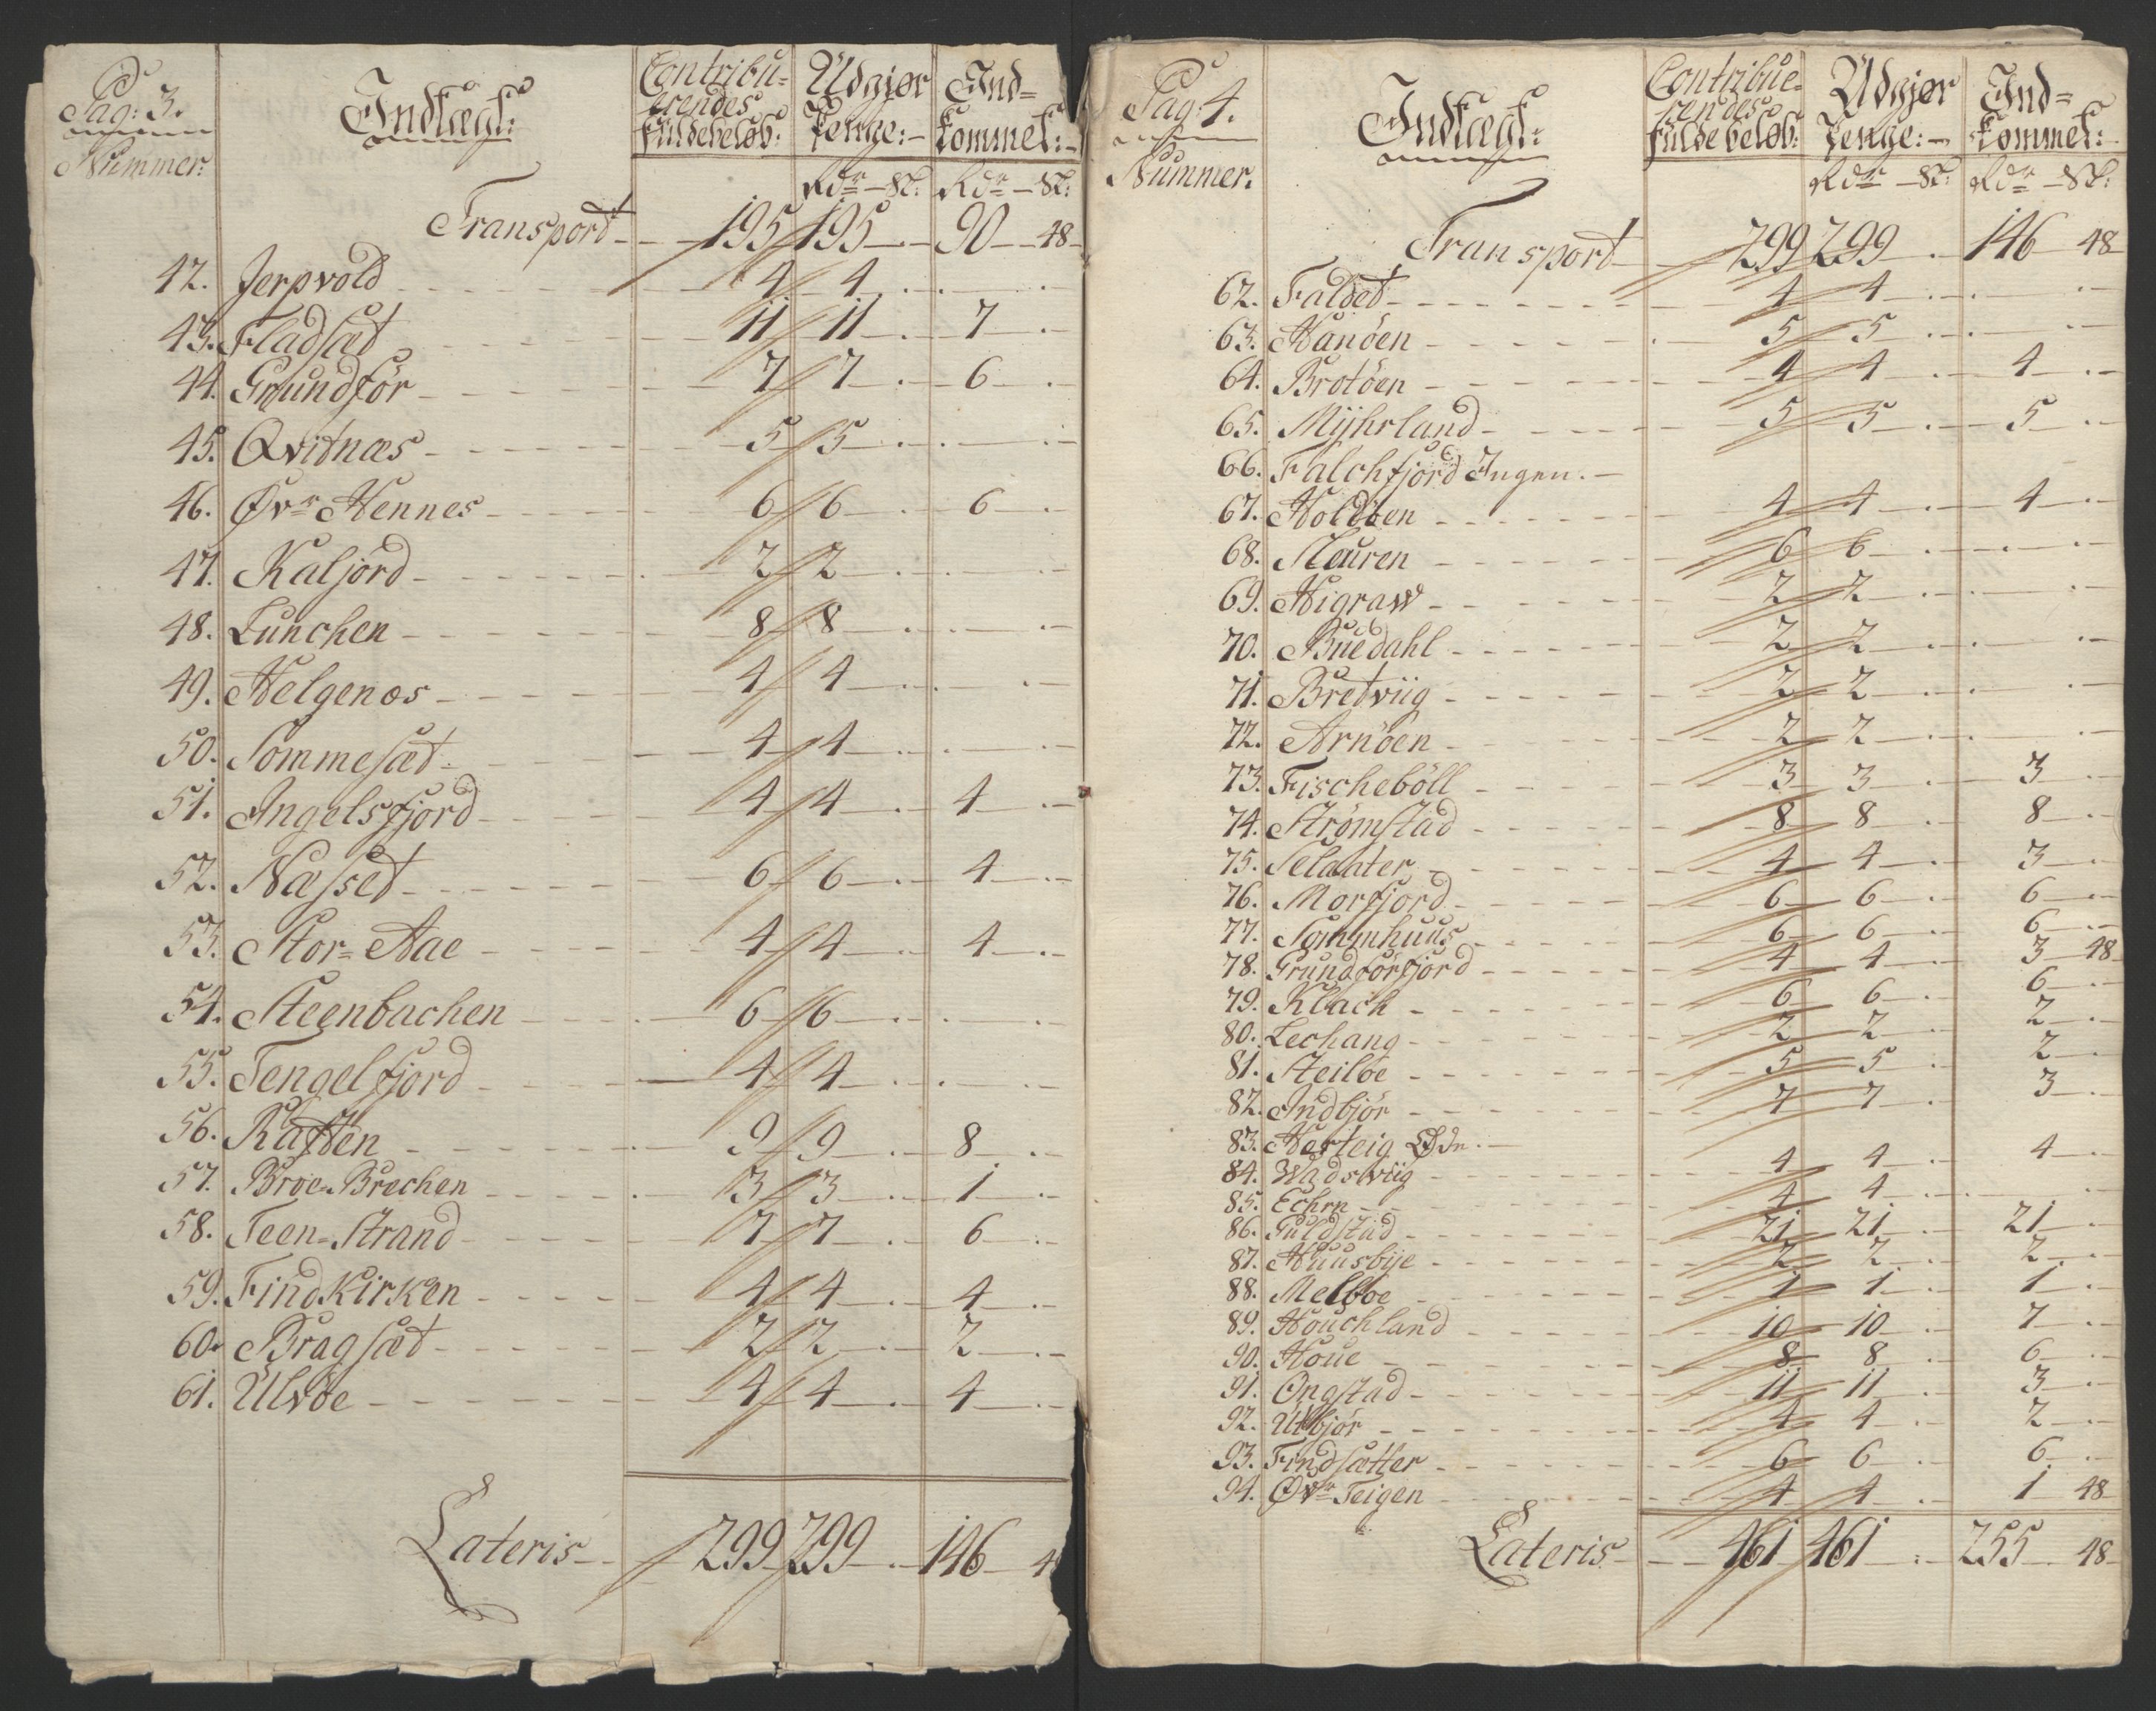 Pag: 3.
Nummer:
Indtægt:
Contribu-
erendes
fulde beløb:
Udgiør
Penge:
Ind-
kommet:
Rdr — Sk: Rdr — Sk:
Transport 195 195 90 48
42. Jerpvold 4 4
43. Fladsæt 11 11 7
44. Grundfør 7 7 6
45. Qvitnæs 5 5
46. Øvr Hennes 6 6 6
47. Kaljord 2 2
48. Lunchen 8 8
49. Helgenæs 4 4
50. Sommesæt 4 4
51. Ingelsfjord 4 4 4
52. Næsset 6 6 4
53. Stor=Aae 4 4 4
54. Steenbachen 6 6
55. Tengelfjord 4 4
56. Raften 9 9 8
57. Broe=Brechen 3 3 1
58. Teen=Strand 7 7 6
59. Findkirken 4 4 4
60. Bragsæt 2 2 2
61. Ulvöe 4 4 4
Lateris 299 299 146 4
Pag: 4.
Nummer.
Indtægt:
Contribue-
rendes
fulde beløb:
Udgjør
Penge:
Ind=
kommet:
Rdr — Sk: Rdr — Sk:
Transport 299 299 146 48
62. Faldet 4 4
63. Hanöen 5 5
64. Brotöen 4 4 4
65. Mÿhrland 5 5 5
66. Falchfjord Ingen.
67. Holdöen 4 4 4
68. Skuren 6 6
69. Higraw 2 2
70. Buedahl 2 2
71. Bretviig 2 2
72. Arnöen 2 2
73. Fischeböll 3 3 3
74. Strømstad 8 8 8
75. Selahter 4 4 3
76. Morfjord 6 6 6
77. Somnhuus 6 6 6
78. Grundförfjord 4 4 3 48
79. Klach 6 6 6
80. Lechang 2 2 2
81. Steilöe 5 5 2
82. Indbjör 7 7 3
83. Herteig Øde.
84. Wadsviig 4 4 4
85. Echrn 4 4
86. Guldstad 21 21 21
87. Huusbije 2 2 2
88. Melböe 1 1 1
89. Houchland 10 10 7
90. Houe 8 8 6
91. Ongstad 11 11 3
92. Utbjör 4 4 2
93. Findsætter 6 6 6
94. Øvr Teigen 4 4 1 48
Lateris 461 461 255 48